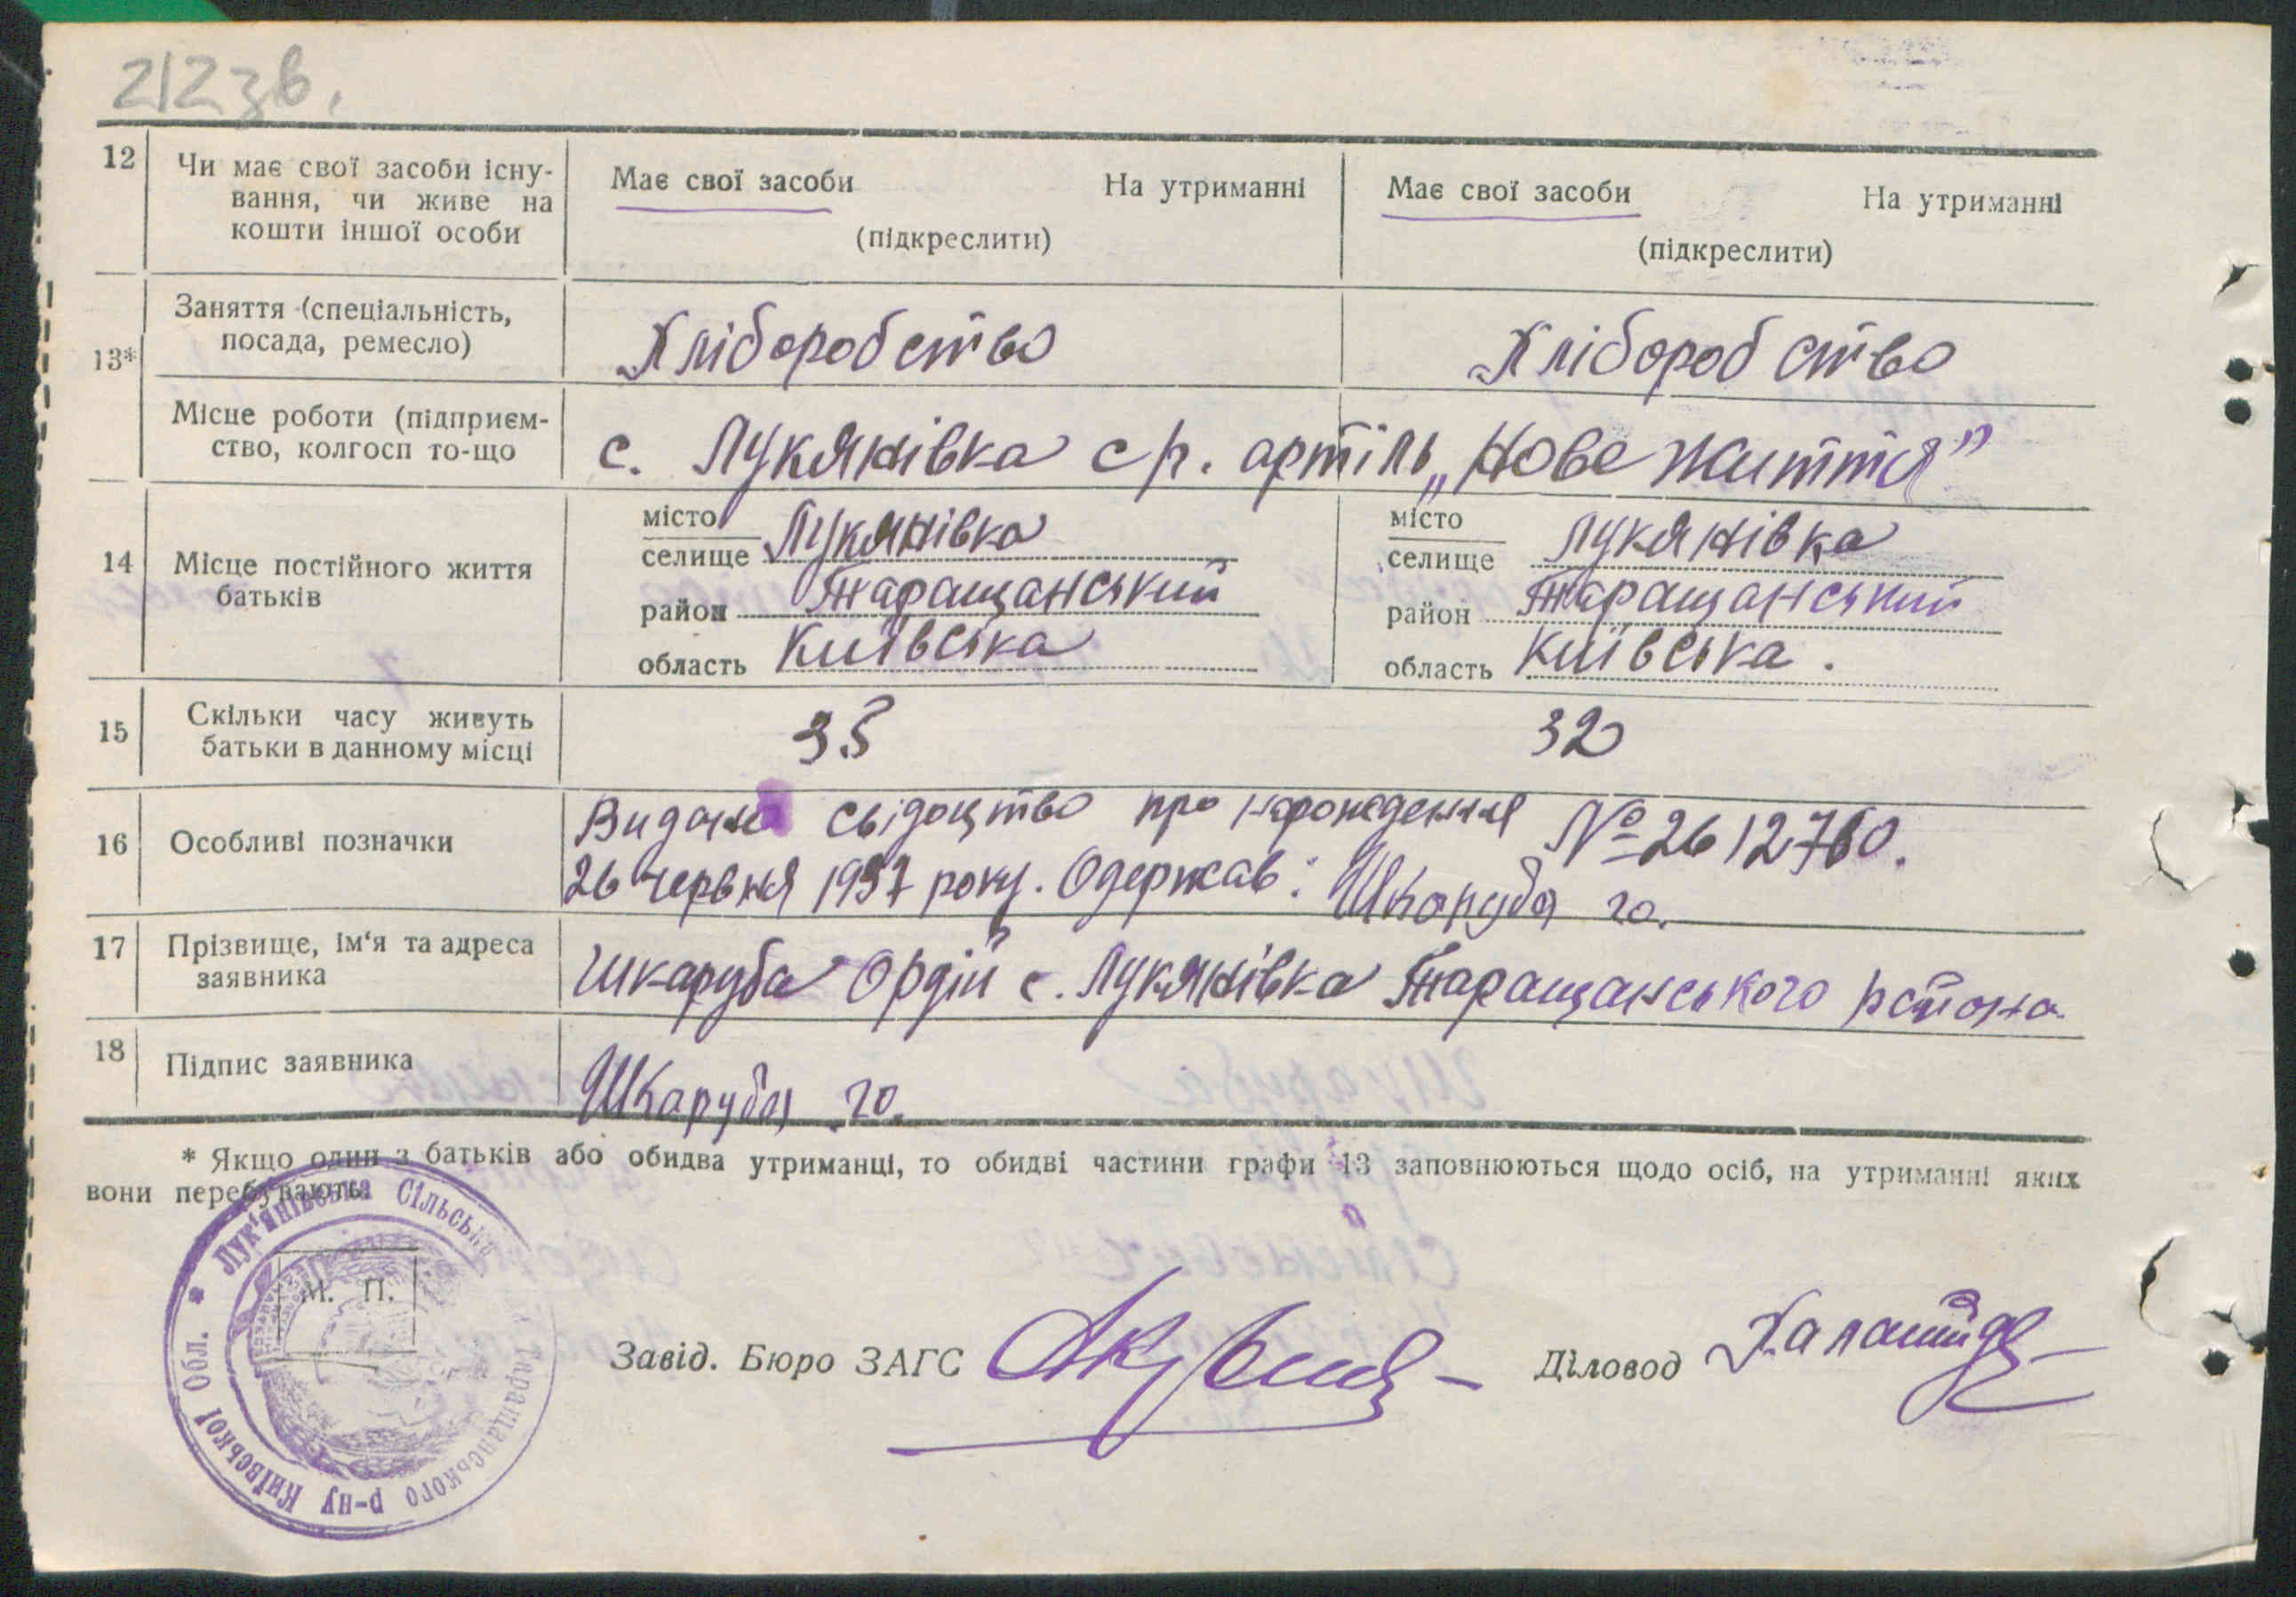 212зв.
12 Чи має свої засоби існу-
вання, чи живе на
кошти іншої особи
Має свої засоби На утриманні
(підкреслити)
Має свої засоби На утриманні
(підкреслити)
13*
Заняття (спеціальність,
посада, ремесло)
Хліборобство
Хліборобство
Місце роботи (підприєм-
ство, колгосп то-що
с. Лукянівка с р. артіль „Нове життя"
14 Місце постійного життя
батьків
місто
селище Лукянівка
район Таращанський
область Київська
місто
селище Лукянівка
район Таращанський
область Київська.
15 Скільки часу живуть
батьки в данному місці
35
32
16 Особливі позначки
Видано свідоцтво про нарождення № 2612760.
26 червня 1937 року. Одержав: Шкаруба Ю.
17 Прізвище, ім'я та адреса
заявника
Шкаруба Ордій с. Лукянівка Таращанського района
18 Підпис заявника
Шкаруба Ю.
* Якщо один з батьків або обидва утриманці, то обидві частини графи 13 заповнюються щодо осіб, на утриманні яких
вони перебувають.
Лук'янівська Сільська Таращанського р-ну Київської Обл.
М. П.
Завід. Бюро ЗАГС
Діловод